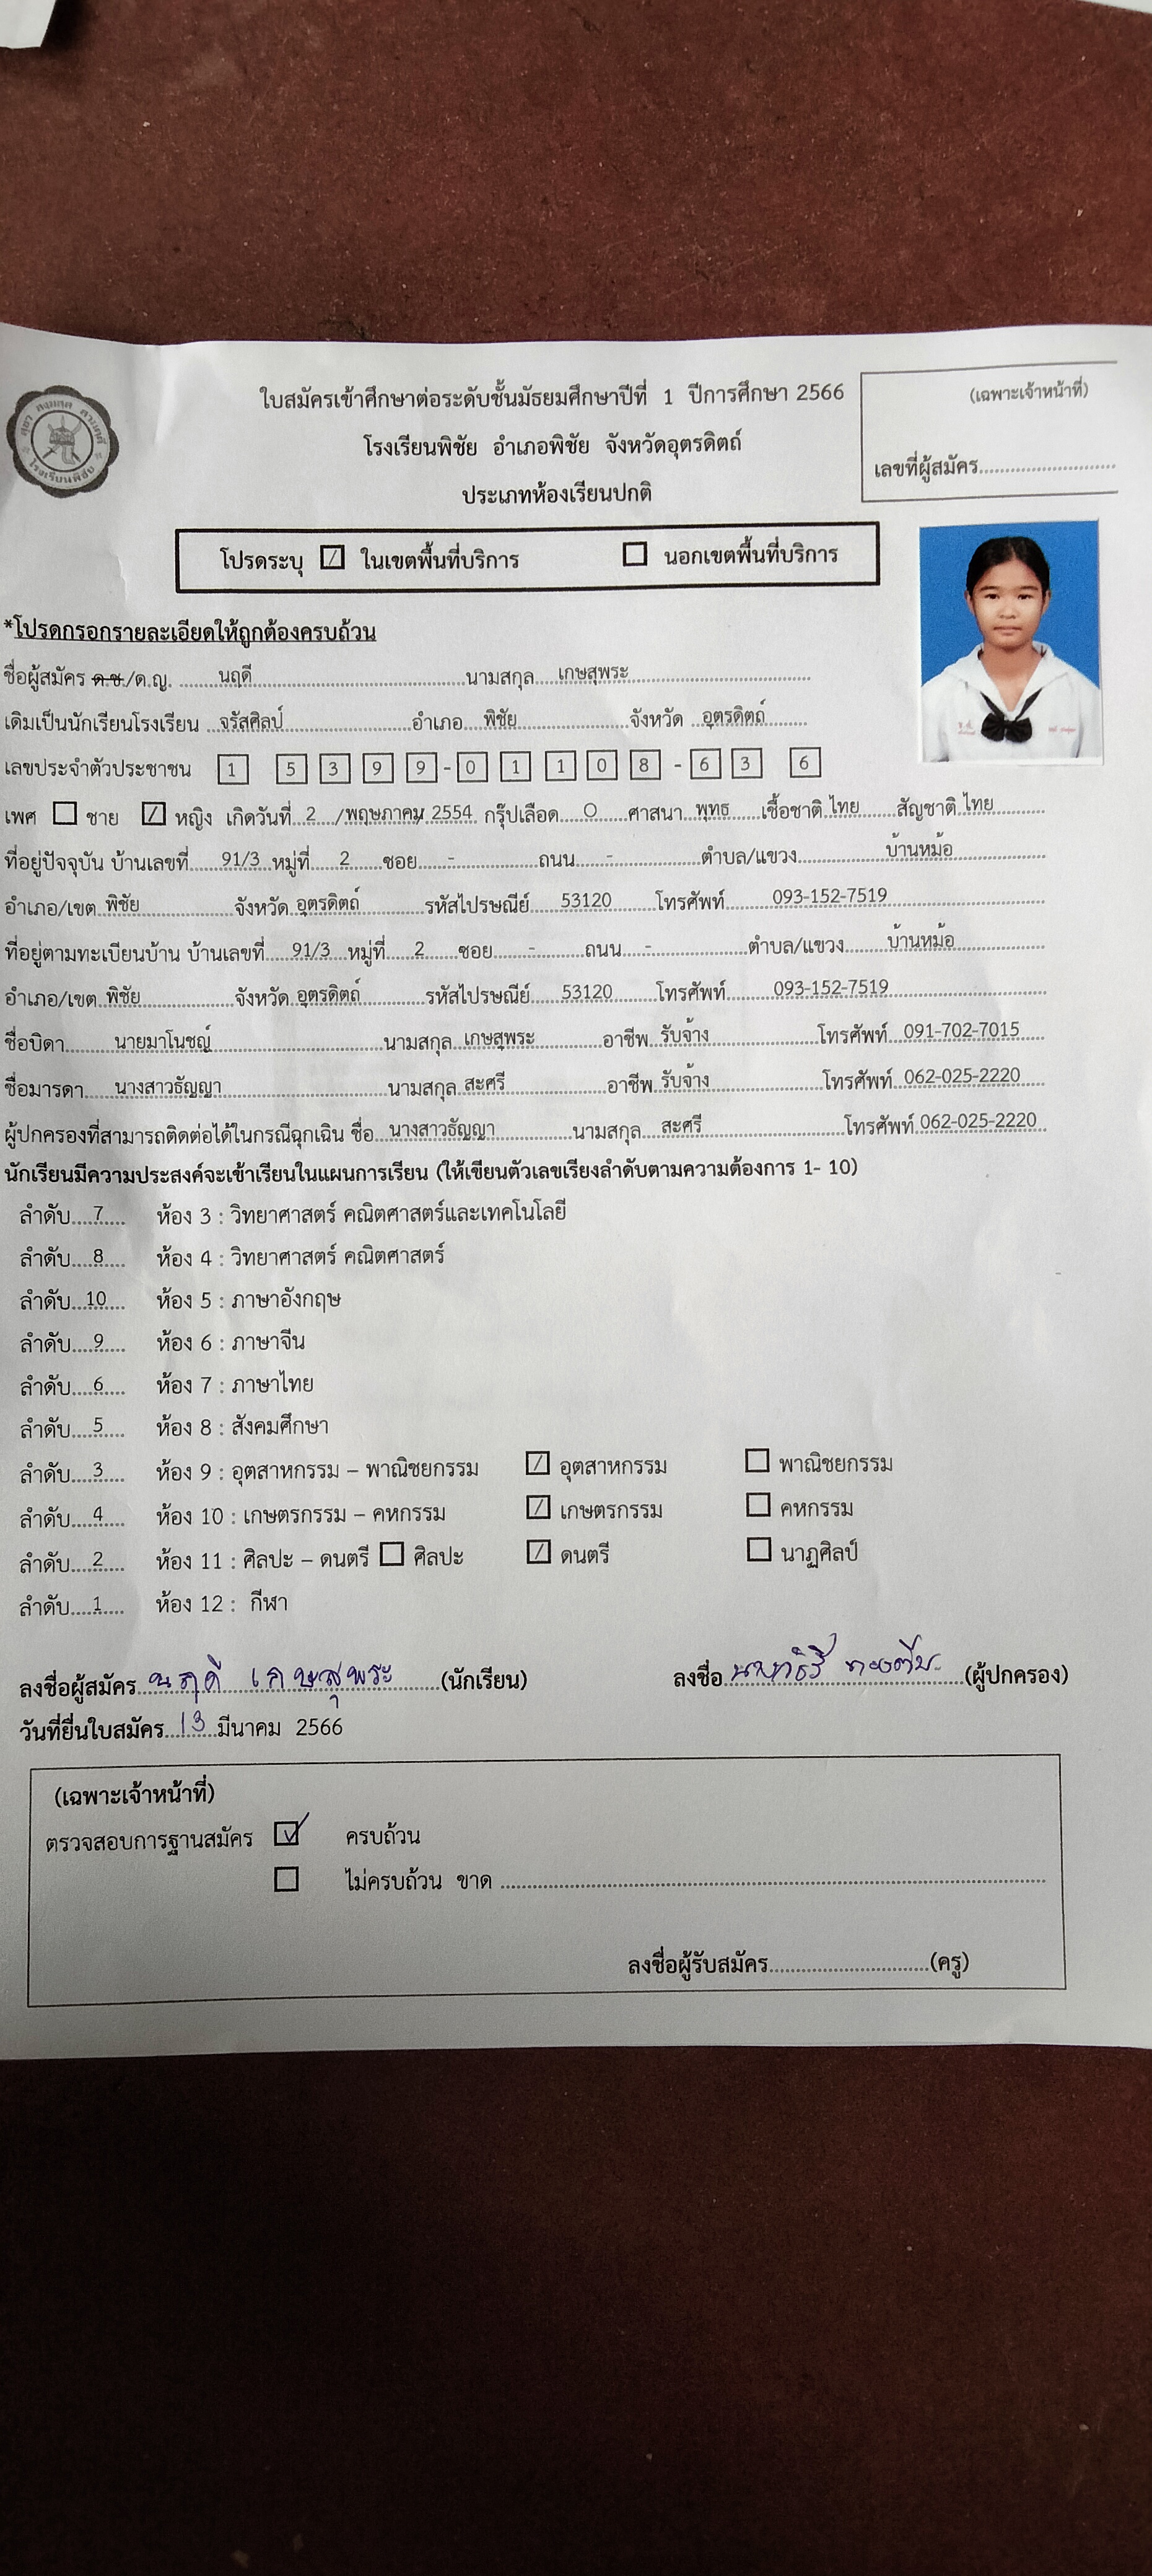 ใบสมัครเข้าศึกษาต่อระดับชั้นมัธยมศึกษาปีที่ 1 ปีการศึกษา 2566
(เฉพาะเจ้าหน้าที่)
โรงเรียนพิชัย อำเภอพิชัย จังหวัดอุตรดิตถ์
เลขที่ผู้สมัคร..........................
ประเภทห้องเรียนปกติ
โรงเรียนพิชัย
โปรดระบุ ☑ ในเขตพื้นที่บริการ ☐ นอกเขตพื้นที่บริการ
*โปรดกรอกรายละเอียดให้ถูกต้องครบถ้วน
ชื่อผู้สมัคร ด.ช./ด.ญ. นฤดี นามสกุล เกษสุพระ
เดิมเป็นนักเรียนโรงเรียน จรัสศิลป์ อำเภอ พิชัย จังหวัด อุตรดิตถ์
เลขประจำตัวประชาชน 1 5 3 9 9 - 0 1 1 0 8 - 6 3 6
เพศ ☐ ชาย ☑ หญิง เกิดวันที่ 2 /พฤษภาคม/ 2554 กรุ๊ปเลือด O ศาสนา พุทธ เชื้อชาติ ไทย สัญชาติ ไทย
ที่อยู่ปัจจุบัน บ้านเลขที่ 91/3 หมู่ที่ 2 ซอย - ถนน - ตำบล/แขวง บ้านหม้อ
อำเภอ/เขต พิชัย จังหวัด อุตรดิตถ์ รหัสไปรษณีย์ 53120 โทรศัพท์ 093-152-7519
ที่อยู่ตามทะเบียนบ้าน บ้านเลขที่ 91/3 หมู่ที่ 2 ซอย - ถนน - ตำบล/แขวง บ้านหม้อ
อำเภอ/เขต พิชัย จังหวัด อุตรดิตถ์ รหัสไปรษณีย์ 53120 โทรศัพท์ 093-152-7519
ชื่อบิดา นายมาโนชญ์ นามสกุล เกษสุพระ อาชีพ รับจ้าง โทรศัพท์ 091-702-7015
ชื่อมารดา นางสาวธัญญา นามสกุล สะศรี อาชีพ รับจ้าง โทรศัพท์ 062-025-2220
ผู้ปกครองที่สามารถติดต่อได้ในกรณีฉุกเฉิน ชื่อ นางสาวธัญญา นามสกุล สะศรี โทรศัพท์ 062-025-2220
นักเรียนมีความประสงค์จะเข้าเรียนในแผนการเรียน (ให้เขียนตัวเลขเรียงลำดับตามความต้องการ 1- 10)
ลำดับ 7 ห้อง 3 : วิทยาศาสตร์ คณิตศาสตร์และเทคโนโลยี
ลำดับ 8 ห้อง 4 : วิทยาศาสตร์ คณิตศาสตร์
ลำดับ 10 ห้อง 5 : ภาษาอังกฤษ
ลำดับ 9 ห้อง 6 : ภาษาจีน
ลำดับ 6 ห้อง 7 : ภาษาไทย
ลำดับ 5 ห้อง 8 : สังคมศึกษา
ลำดับ 3 ห้อง 9 : อุตสาหกรรม – พาณิชยกรรม ☑ อุตสาหกรรม ☐ พาณิชยกรรม
ลำดับ 4 ห้อง 10 : เกษตรกรรม – คหกรรม ☑ เกษตรกรรม ☐ คหกรรม
ลำดับ 2 ห้อง 11 : ศิลปะ – ดนตรี ☐ ศิลปะ ☑ ดนตรี ☐ นาฏศิลป์
ลำดับ 1 ห้อง 12 : กีฬา
ลงชื่อผู้สมัคร นฤดี เกษสุพระ (นักเรียน) ลงชื่อ (ผู้ปกครอง)
วันที่ยื่นใบสมัคร 13 มีนาคม 2566
(เฉพาะเจ้าหน้าที่)
ตรวจสอบการฐานสมัคร ☑ ครบถ้วน
☐ ไม่ครบถ้วน ขาด
ลงชื่อผู้รับสมัคร..............................(ครู)